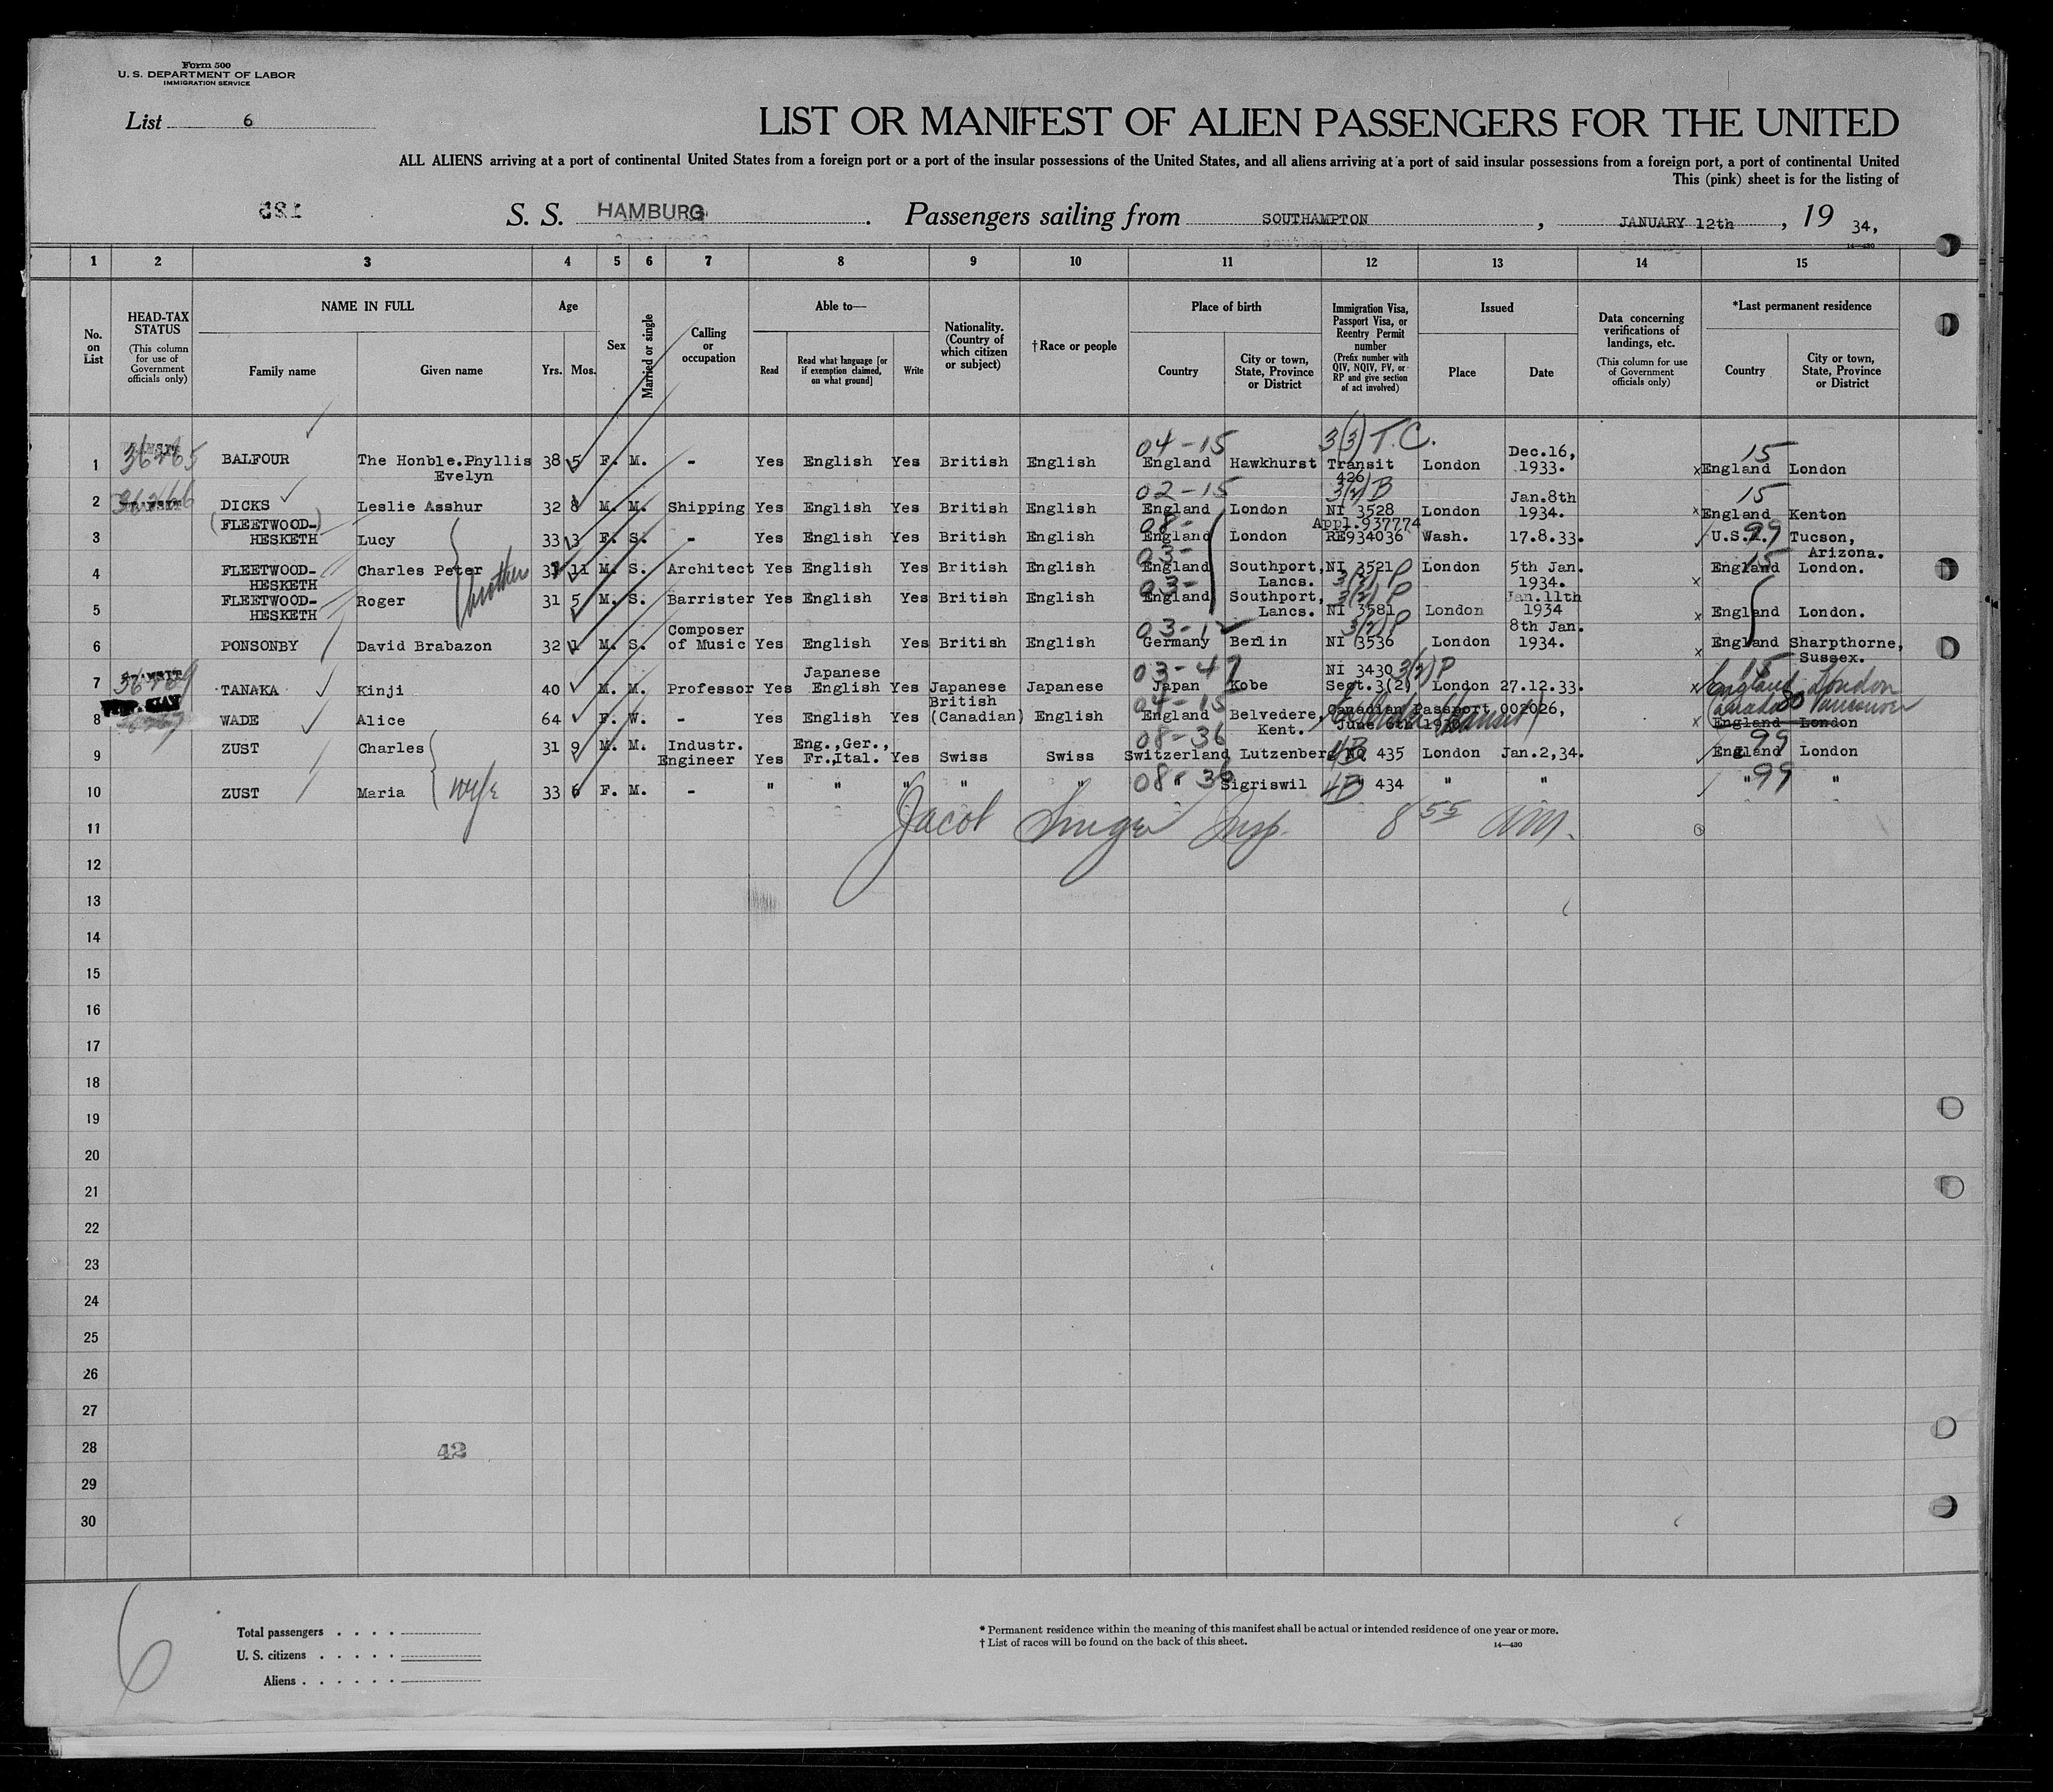 Form 500
U. S. DEPARTMENT OF LABOR
IMMIGRATION SERVICE
List 6
LIST OR MANIFEST OF ALIEN PASSENGERS FOR THE UNITED
ALL ALIENS arriving at a port of continental United States from a foreign port or a port of the insular possessions of the United States, and all aliens arriving at a port of said insular possessions from a foreign port, a port of continental United
This (pink) sheet is for the listing of
S. S. HAMBURG. Passengers sailing from SOUTHAMPTON, JANUARY 12th, 19 34,
14—430
1 2 3 4 5 6 7 8 9 10 11 12 13 14 15
No. on List
HEAD-TAX STATUS (This column for use of Government officials only)
NAME IN FULL
Family name Given name
Age
Yrs. Mos.
Sex
Married or single
Calling or occupation
Able to—
Read Read what language [or if exemption claimed, on what ground] Write
Nationality. (Country of which citizen or subject)
†Race or people
Place of birth
Country City or town, State, Province or District
Immigration Visa, Passport Visa, or Reentry Permit number (Prefix number with QIV, NQIV, PV, or RP and give section of act involved)
Issued
Place Date
Data concerning verifications of landings, etc. (This column for use of Government officials only)
*Last permanent residence
Country City or town, State, Province or District
04-15 3(3) T.C. 15
1 BALFOUR The Honble.Phyllis Evelyn 38 5 F. M. - Yes English Yes British English England Hawkhurst Transit 426 London Dec.16, 1933. England London
02-15 3(2)B 15
2 DICKS Leslie Asshur 32 8 M. M. Shipping Yes English Yes British English England London NI 3528 London Jan.8th 1934. England Kenton
08- 99
3 FLEETWOOD-HESKETH Lucy 33 3 F. S. - Yes English Yes British English England London Appl.937774 RE934036 Wash. 17.8.33. U.S.A. Tucson, Arizona.
brother
03- 15
4 FLEETWOOD-HESKETH Charles Peter 11 M. S. Architect Yes English Yes British English England Southport, Lancs. NI 3521 3(2) P London 5th Jan. 1934. England London.
03-
5 FLEETWOOD-HESKETH Roger 31 5 M. S. Barrister Yes English Yes British English England Southport, Lancs. 3(2) P NI 3581 London Jan.11th 1934 England London.
03-12 3(2)P
6 PONSONBY David Brabazon 32 1 M. S. Composer of Music Yes English Yes British English Germany Berlin NI 3536 London 8th Jan. 1934. England Sharpthorne, Sussex.
03-47 15
7 TANAKA Kinji 40 M. M. Professor Yes Japanese English Yes Japanese Japanese Japan Kobe NI 3430 3(2)P Sect.3(2) London 27.12.33. England London
04-15 Canada 80 Vancouver
8 WADE Alice 64 F. W. - Yes English Yes British (Canadian) English England Belvedere, Kent. Canadian Passport 002026, June 6th 1930 England London
08-36 99
9 ZUST Charles 31 9 M. M. Industr. Engineer Yes Eng.,Ger., Fr.,Ital. Yes Swiss Swiss Switzerland Lutzenberg 4B NQ 435 London Jan.2,34. England London
wife
08-36 99
10 ZUST Maria 33 6 F. M. - " " " " " " Sigriswil 4B " 434 " " " "
Jacob Singer Insp. 8 55 AM.
11
12
13
14
15
16
17
18
19
20
21
22
23
24
25
26
27
28 42
29
30
6
Total passengers
U. S. citizens
Aliens
* Permanent residence within the meaning of this manifest shall be actual or intended residence of one year or more.
† List of races will be found on the back of this sheet.
14—430